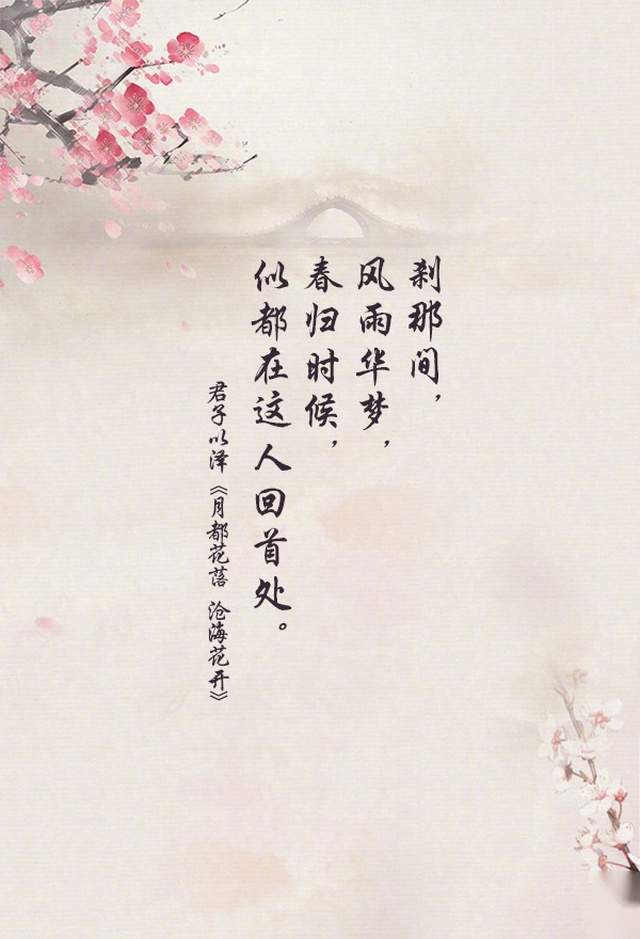 刹那间，
风雨华梦，
春归时候，
似都在这人回首处。
君子以泽《月都花落 沧海花开》